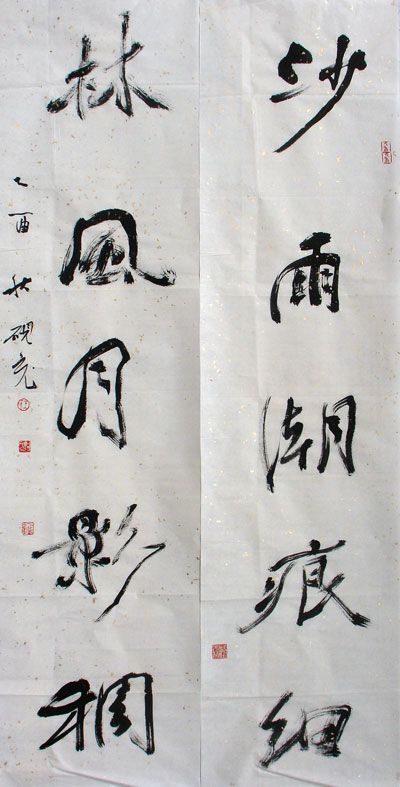 沙雨潮痕细
林风月影稠
乙酉秋砚亮